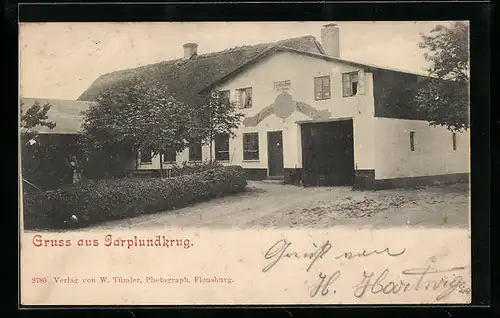 Gruss aus Jarplundkrug.
2786 Verlag von W. Tümler, Photograph, Flensburg.
Gruß von
H. Hartwigsen